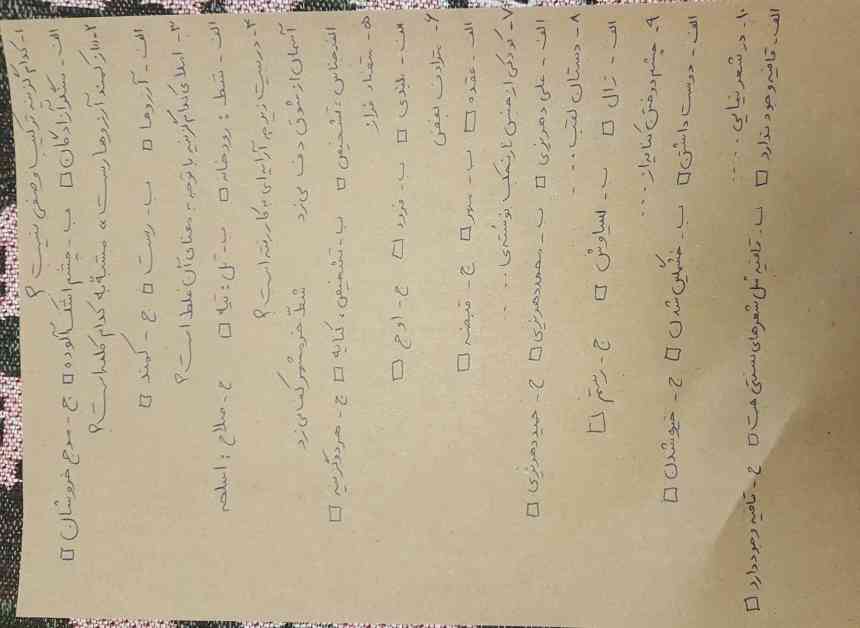 ۱- کدام گزینه ترکیب وصفی نیست؟
الف- سنگر آزادگان □ ب- چشم اشک آلوده □ ج- موج خروشان □
۲- «از کمند آرزوها رست» مشبه به کدام کلمه است؟
الف- آرزوها □ ب- رست □ ج- کمند □
۳- املای کدام گزینه با توجه به معنای آن غلط است؟
الف- شط: رودخانه □ ب- تل: تپه □ ج- صلاح: اسلحه
۴- در بیت زیر چه آرایه‌ای به کار رفته است؟
آسمان از شوق دف می‌زد شط خرمشهر کف می‌زد
الف- جناس، تشخیص □ ب- تشخیص، کنایه □ ج- هر دو گزینه □
۵- متضاد فراز
الف- بلندی □ ب- فرود □ ج- اوج □
۶- مترادف بغض
الف- عقده □ ب- سپر □ ج- قبضه □
۷- کودکی از جنس نارنجک نوشته‌ی ....
الف- علی دهریزی □ ب- محمد دهریزی □ ج- حمید دهریزی □
۸- دستان لقب ....
الف- زال □ ب- سیاوش □ ج- رستم □
۹- چشم دوختن کنایه از ...
الف- دوست داشتن □ ب- خشمگین شدن □ ج- خیره شدن □
۱۰- در شعر نیمایی .....
الف- قافیه وجود ندارد □ ب- قافیه مثل شعرهای سنتی است □ ج- قافیه وجود دارد □